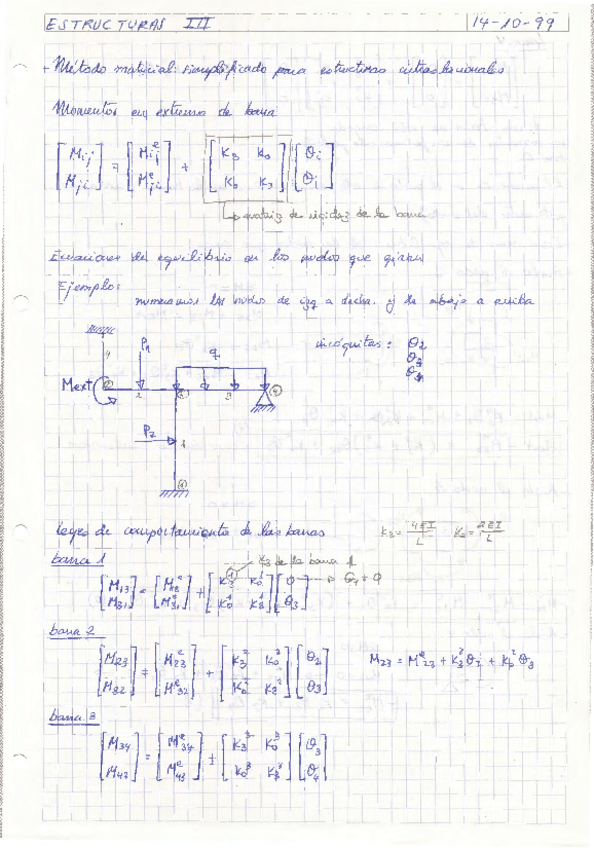 ESTRUCTURAS III 14-10-99
+ Método matricial simplificado para estructuras intraslacionales
Momentos en extremo de barra
[Mij Mji] = [M^e_ij M^e_ji] + [K3 K0 K0 K3] [θi θj]
↳ matriz de rigidez de la barra
Ecuaciones de equilibrio en los nudos que giran
Ejemplo:
numeramos los nudos de izq a decha. y de abajo a arriba
incógnitas: θ2
θ3
θ4
P1 q
4
Mext 2 3 4
P2 1
1
Leyes de comportamiento de las barras K3 = 4EI/L K0 = 2EI/L
barra 1 K3 de la barra 1
[M13 M31] = [M^e_13 M^e_31] + [K3^1 K0^1 K0^1 K3^1] [0 θ3] → θ1 = 0
barra 2
[M23 M32] = [M^e_23 M^e_32] + [K3^2 K0^2 K0^2 K3^2] [θ2 θ3] M23 = M^e_23 + K3^2 θ2 + K0^2 θ3
barra 3
[M34 M43] = [M^e_34 M^e_43] + [K3^3 K0^3 K0^3 K3^3] [θ3 θ4]